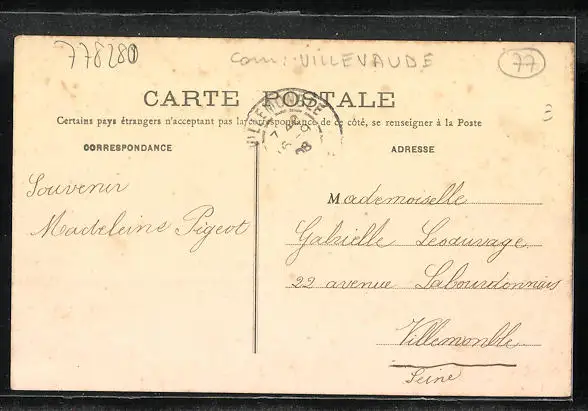 778280
Com: VILLEVAUDE
77
CARTE POSTALE
Certains pays étrangers n'acceptant pas la correspondance de ce côté, se renseigner à la Poste
CORRESPONDANCE
Souvenir
Madeleine Pigeot
VILLEMOMBLE
ADRESSE
Mademoiselle
Gabrielle Lesauvage
22 avenue Labourdonnais
Villemomble
Seine